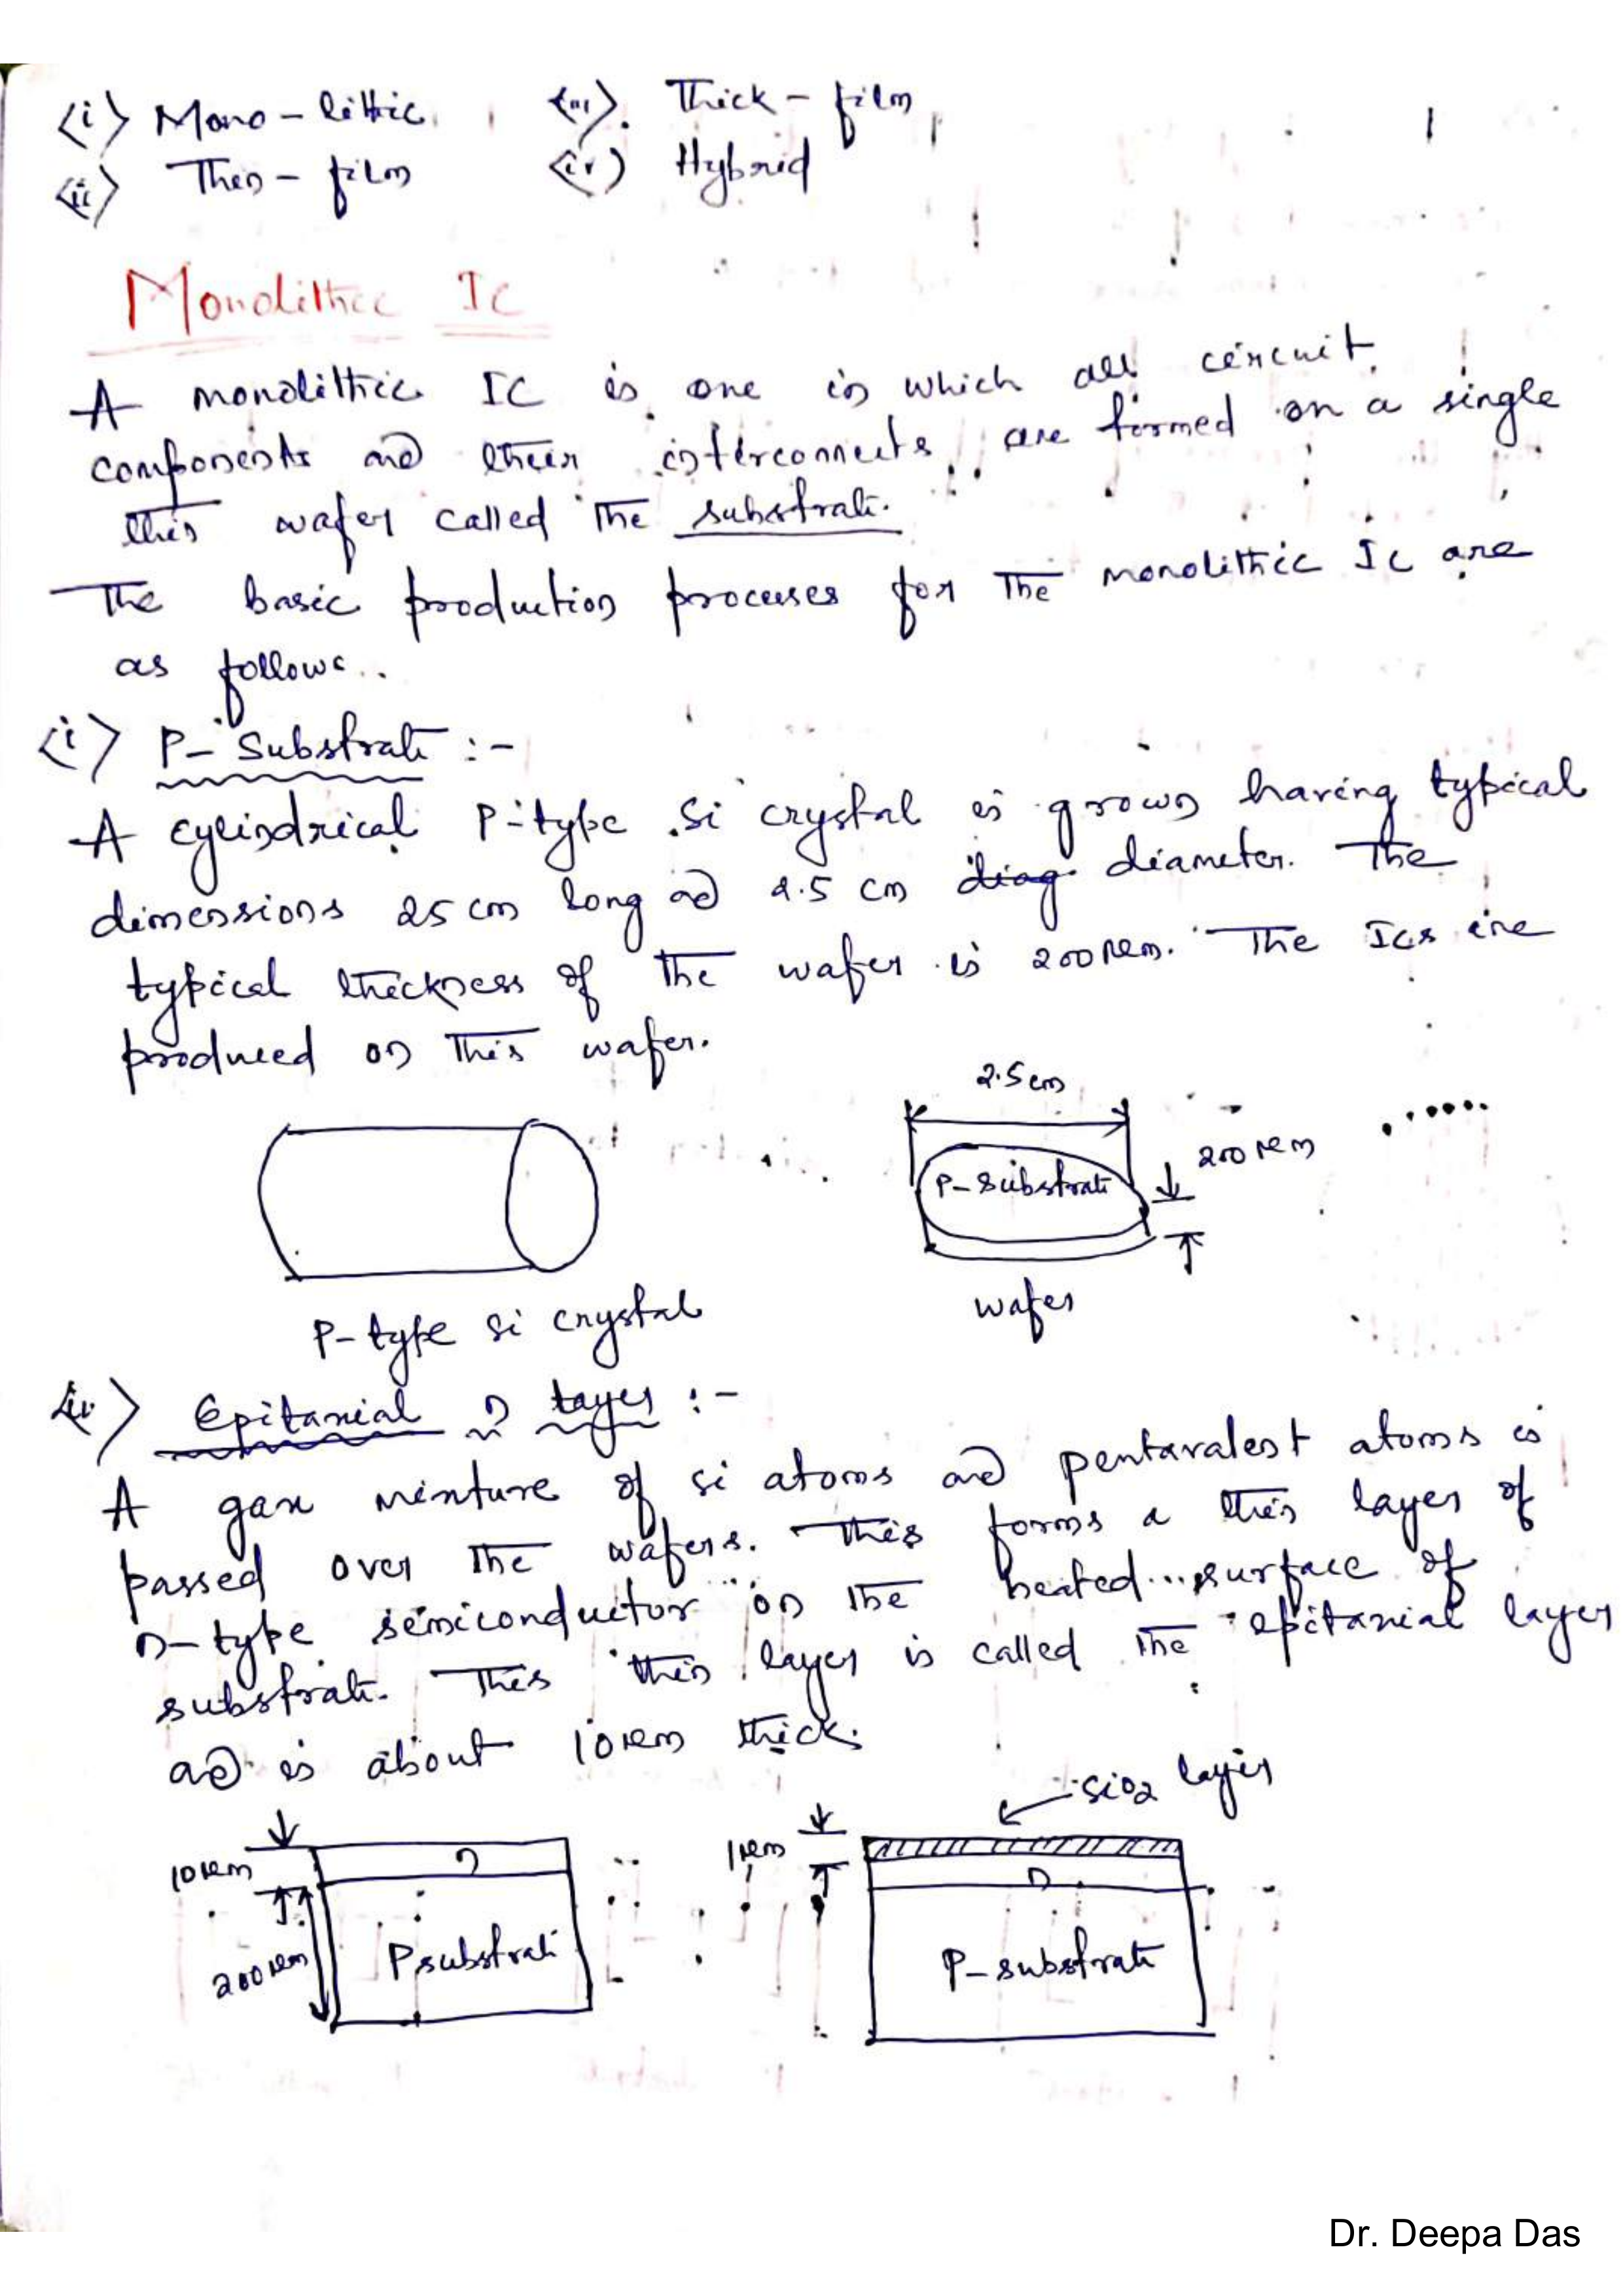 <i> Mono-lithic
<iii>. Thick-film
<ii> Thin-film
<iv) Hybrid
Monolithic IC
A monolithic IC is one in which all circuit
components and their interconnects are formed on a single
thin wafer called the substrate.
The basic production processes for the monolithic IC are
as follows..
<i> P-Substrate :-
A cylindrical P-type si crystal is grown having typical
dimensions 25 cm long and 2.5 cm diag. diameter. The
typical thickness of the wafer is 200 μm. The ICs are
produced on this wafer.
2.5 cm
200 μm
P-substrate
wafer
P-type si crystal
<ii> Epitaxial n layer :-
A gas mixture of si atoms and pentavalent atoms is
passed over the wafers. This forms a thin layer of
n-type semiconductor on the heated surface of
substrate. This thin layer is called the epitaxial layer
and is about 10 μm thick.
SiO2 layer
10 μm
n
1 μm
n
200 μm
P substrate
P-substrate
Dr. Deepa Das